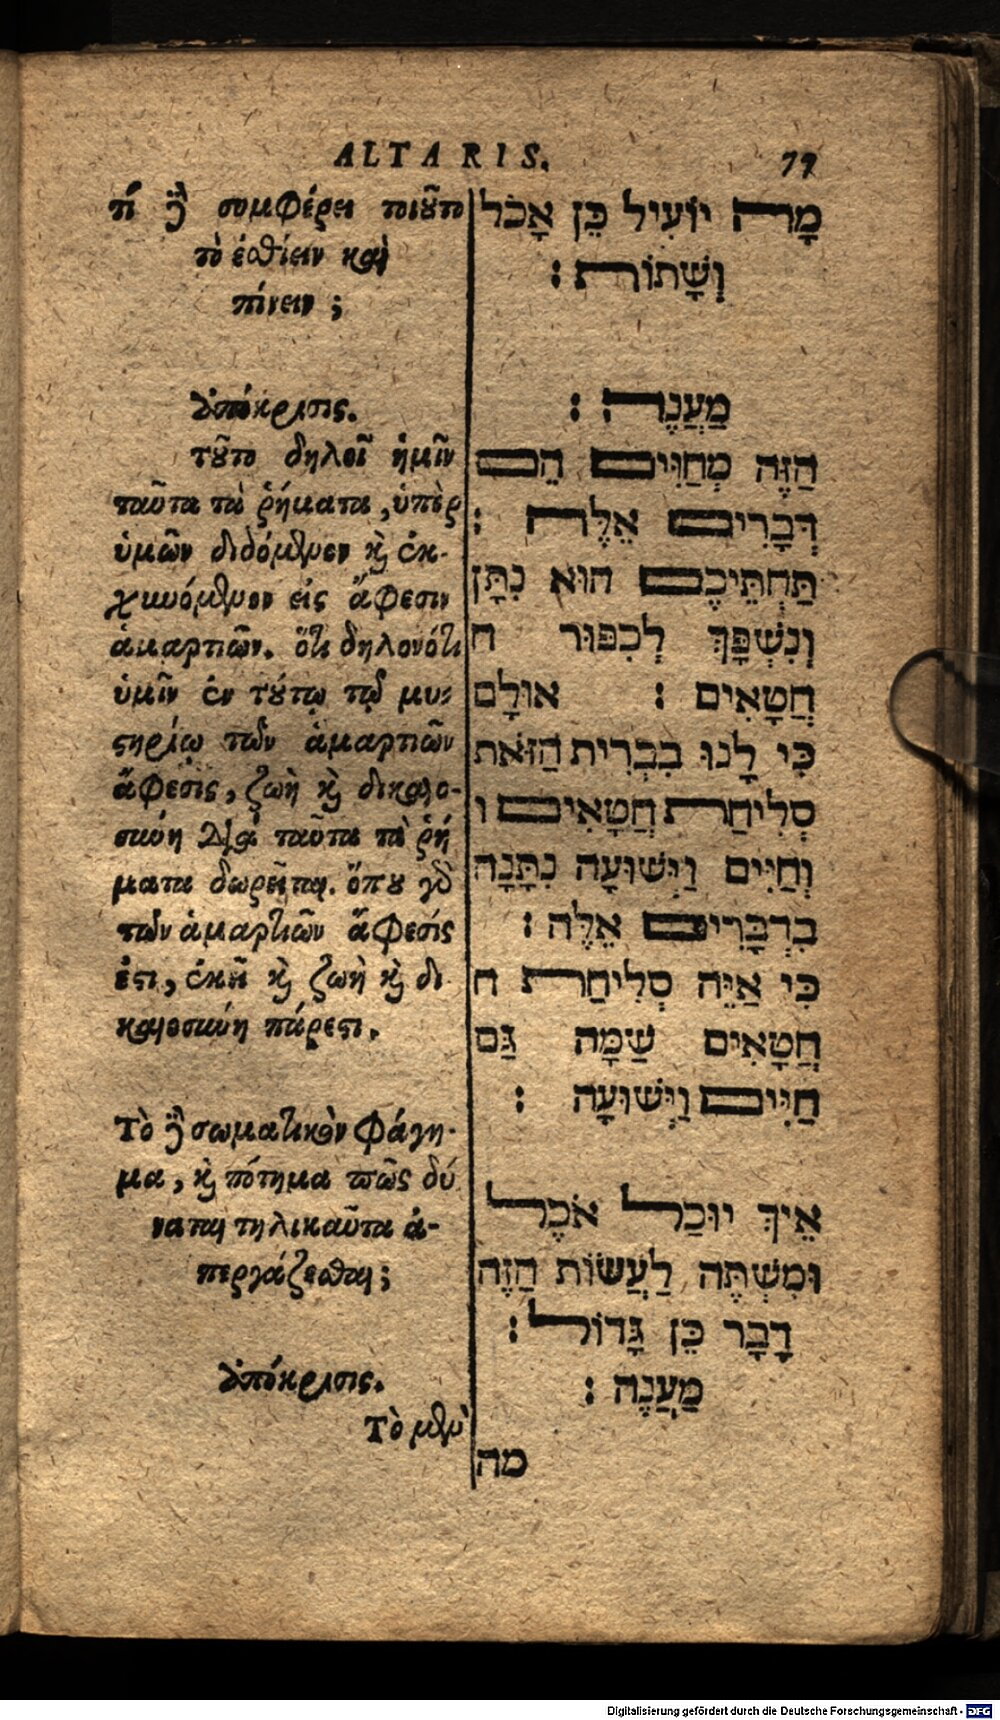 ALTARIS. 79
τί δὲ συμφέρει τοιοῦτο
τὸ ἐσθίειν καὶ
πίνειν ;
ἀπόκρισις.
τοῦτο δηλοῖ ἡμῖν
ταῦτα τὰ ῥήματα, ὑπὲρ
ὑμῶν διδόμενον καὶ ἐκ-
χυνόμενον εἰς ἄφεσιν
ἁμαρτιῶν. ὅτι δηλονότι
ὑμῖν ἐν τούτῳ τῷ μυ-
στηρίῳ τῶν ἁμαρτιῶν
ἄφεσις, ζωὴ καὶ δικαιο-
σύνη διὰ ταῦτα τὰ ῥή
ματα δωρεῖται. ὅπου γὰρ
τῶν ἁμαρτιῶν ἄφεσίς
ἐστι, ἐκεῖ καὶ ζωὴ καὶ δι
καιοσύνη πάρεστι.
Τὸ δὲ σωματικὸν φάγη-
μα, καὶ πότημα πῶς δύ
ναται τηλικαῦτα ἀ-
περγάζεσθαι;
ἀπόκρισις.
Τὸ μὲν
מָה יוֹעִיל כֵּן אָכֹל
וְשָׁתוֹת :
מַעֲנֶה :
הַזֶּה מְחַוִּים הֵם
דְּבָרִים אֵלֶּה :
תַּחְתֵּיכֶם הוּא נִתָּן
וְנִשְׁפָּךְ לְכִפּוּר ח
חֲטָאִים : אוּלָם
כִּי לָנוּ בִּבְרִית הַזֹּאת
סְלִיחַת חֲטָאִים ו
וְחַיִּים וַיְשׁוּעָה נִתָּנָה
בִּדְבָרִים אֵלֶּה :
כִּי אַיֵּה סְלִיחַת ח
חֲטָאִים שַׁמָּה גַּם
חַיִּים וַיְשׁוּעָה :
אֵיךְ יוּכַל אֹכֶל
וּמִשְׁתֶּה לַעֲשׂוֹת הַזֶּה
דָּבָר כֵּן גָּדוֹל :
מַעֲנֶה :
מה
Digitalisierung gefördert durch die Deutsche Forschungsgemeinschaft - DFG